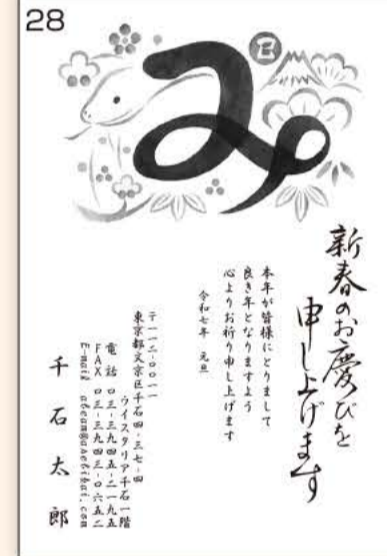 28
み
巳
新春のお慶びを
申し上げます
本年が皆様にとりまして
良き年となりますよう
心よりお祈り申し上げます
令和七年 元旦
〒一一二-〇〇一一
東京都文京区千石四-三七-四
ウイスタリア千石一階
電話 〇三-三九四五-二一九五
FAX 〇三-三九四三-〇六五二
E-mail
千石太郎